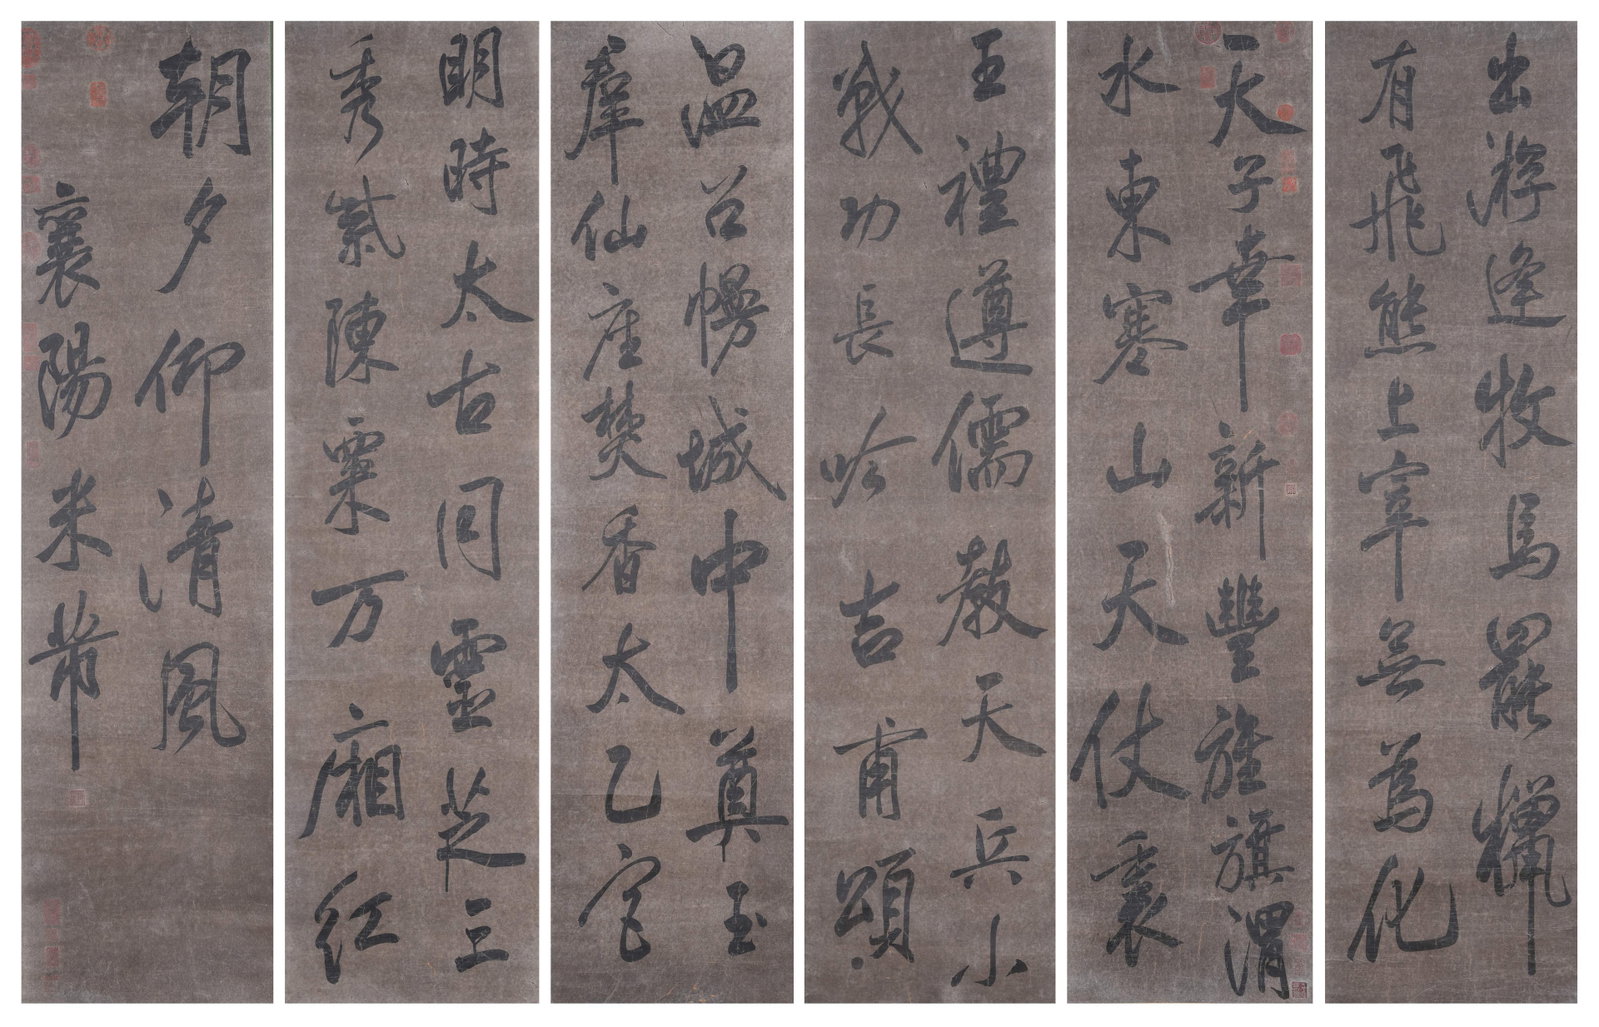 出游逢牧馬罷獵
有飛熊上宰無為化
天子幸新豐旌旗渭
水東寒山天仗裏
王禮遵儒教天兵小
戰功長吟吉甫頌
温谷幔城中奠玉
羣仙座焚香太乙宮
明時太古同靈芝三
秀紫陳粟万廂紅
朝夕仰清風
襄陽米芾